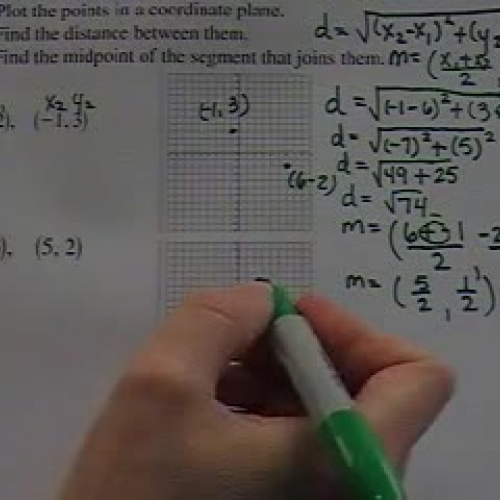 Plot the points in a coordinate plane.
Find the distance between them.
Find the midpoint of the segment that joins them.
d = √(x₂-x₁)² + (y₂
m = (x₁+x₂/2,
x₂ y₂
2), (-1, 3)
(-1, 3)
(6-2)
d = √(-1-6)² + (3+
d = √(-7)² + (5)²
d = √49 + 25
d = √74
m = (6+-1/2, -2
m = (5/2, 1/2)
), (5, 2)